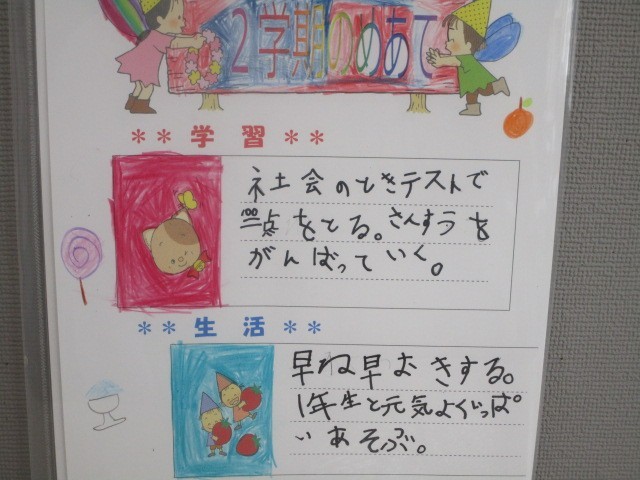 2学期のめあて
** 学習 **
社会のときテストで
100点をとる。さんすうを
がんばっていく。
** 生活 **
早ね早おきする。
1年生と元気よくいっぱ
いあそぶ。